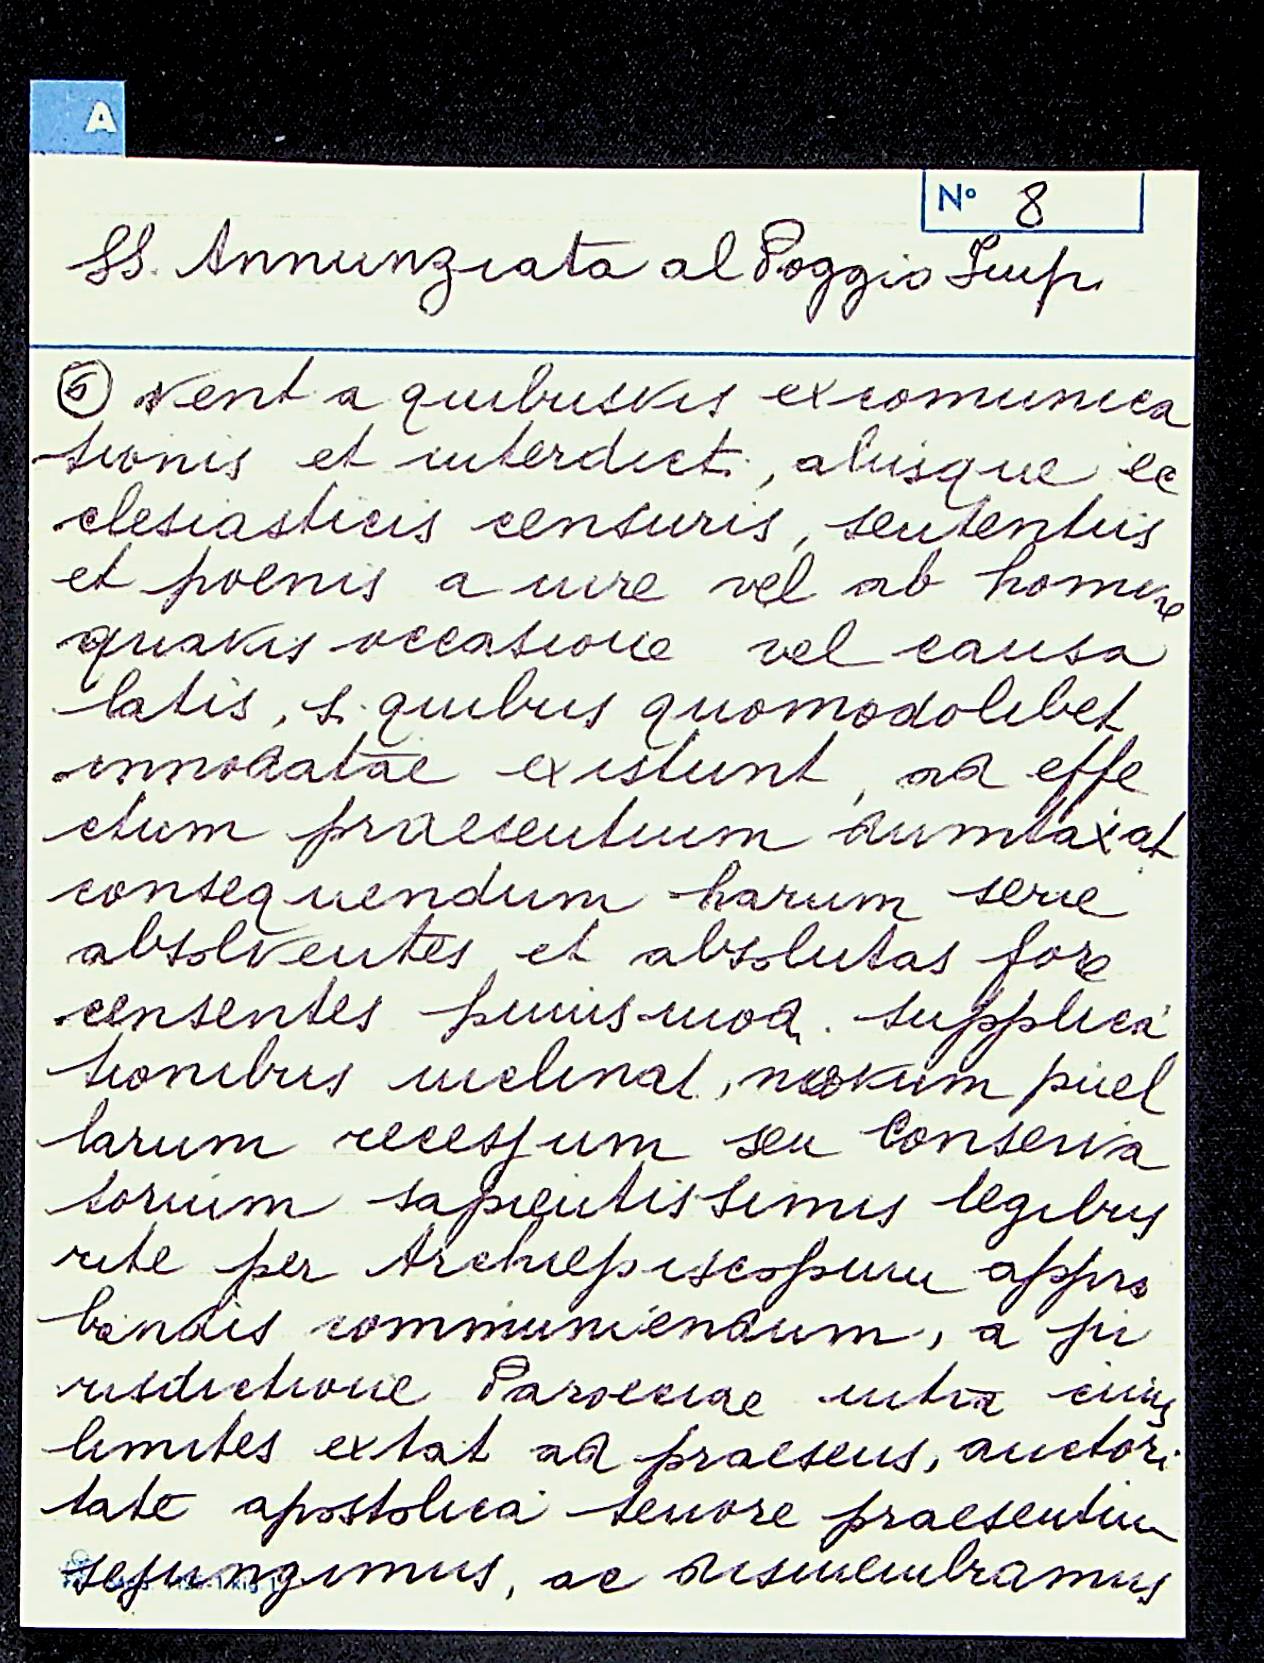 A
N° 8
SS. Annunziata al Poggio Imp.
⑤ vent a quibusvis excomunica
tionis et interdict., aliisque ec
clesiasticis censuris, sententiis
et poenis a iure vel ab homine
quavis occasione vel causa
latis, s. quibus quomodolibet
innodatae existunt, ad effe
ctum praesentium dumtaxat
consequendum harum serie
absolventes et absolutas fore
censentes huiusmod. supplica
tionibus inclinat, novum puel
larum recessum seu Conserva
torium sapientissimis legibus
rite per Archiepiscopum appro
bandis communiendum, a ju
risdictione Paroeciae intra cuius
limites extat ad praesens, auctori
tate apostolica tenore praesentium
sejungimus, ac dismembramus